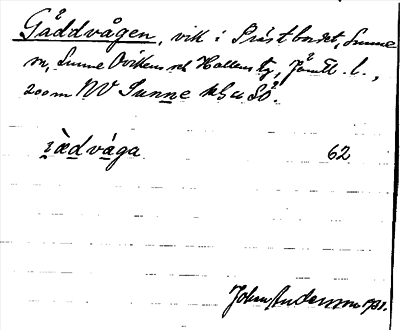 Gåddvågen, vik i Prästbordet, Sunne
sn, Sunne Ovikens och Hallens tg, Jämtl. l.,
200 m NV Sunne k
ìædvåga 62
John Andersson 1931.